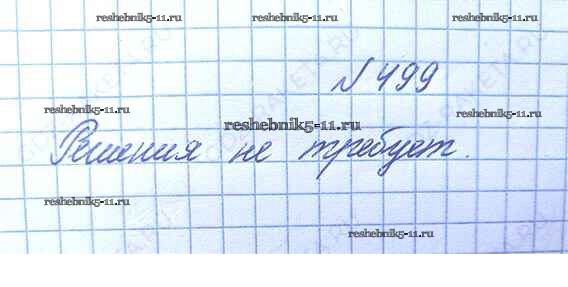 reshebnik5-11.ru
reshebnik5-11.ru
№ 499
reshebnik5-11.ru
reshebnik5-11.ru
reshebnik5-11.ru
Решения не требует.
reshebnik5-11.ru
reshebnik5-11.ru